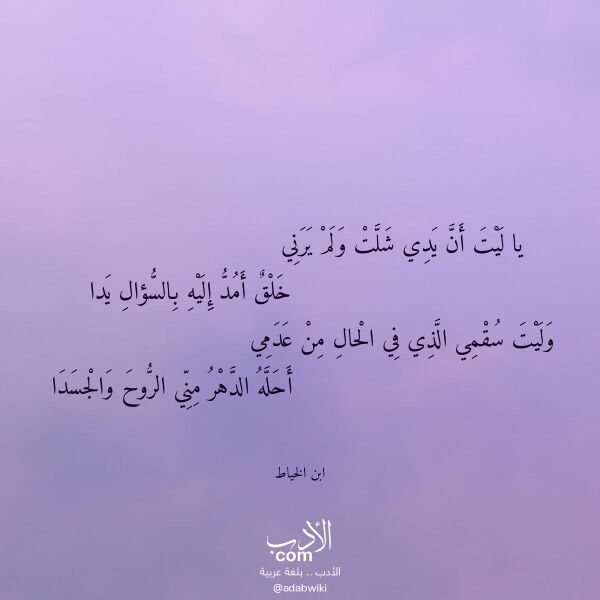 يا لَيْتَ أَنَّ يَدِي شَلَّتْ وَلَمْ يَرَنِي
خَلْقٌ أَمُدُّ إِلَيْهِ بِالسُّؤالِ يَدا
وَلَيْتَ سُقْمِي الَّذِي فِي الْحالِ مِنْ عَدَمِي
أَحَلَّهُ الدَّهْرُ مِنِّي الرُّوحَ وَالْجَسَدَا
ابن الخياط
الأدب
.com
الأدب .. بلغة عربية
@adabwiki